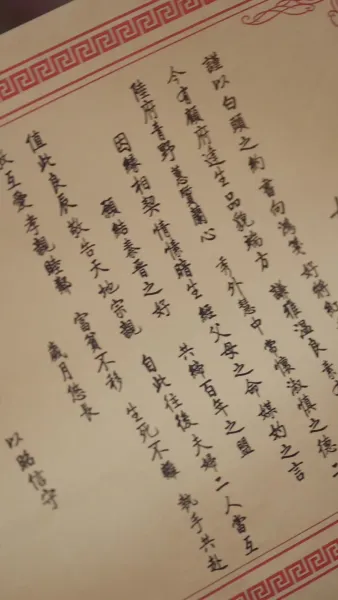 謹以白頭之約書向鴻箋 好將紅
今有顧府達生品貌端方 謙雅溫良 素
陸府青野蕙質蘭心 秀外慧中 常懷淑慎之德 二
因緣相契 情愫暗生 經父母之命 媒妁之言
願結秦晉之好 共締百年之盟
值此良辰 敬告天地宗親 自此往後 夫婦二人當互
互愛 孝親睦鄰 富貧不移 生死不離 執手共赴
歲月悠長
以 信守